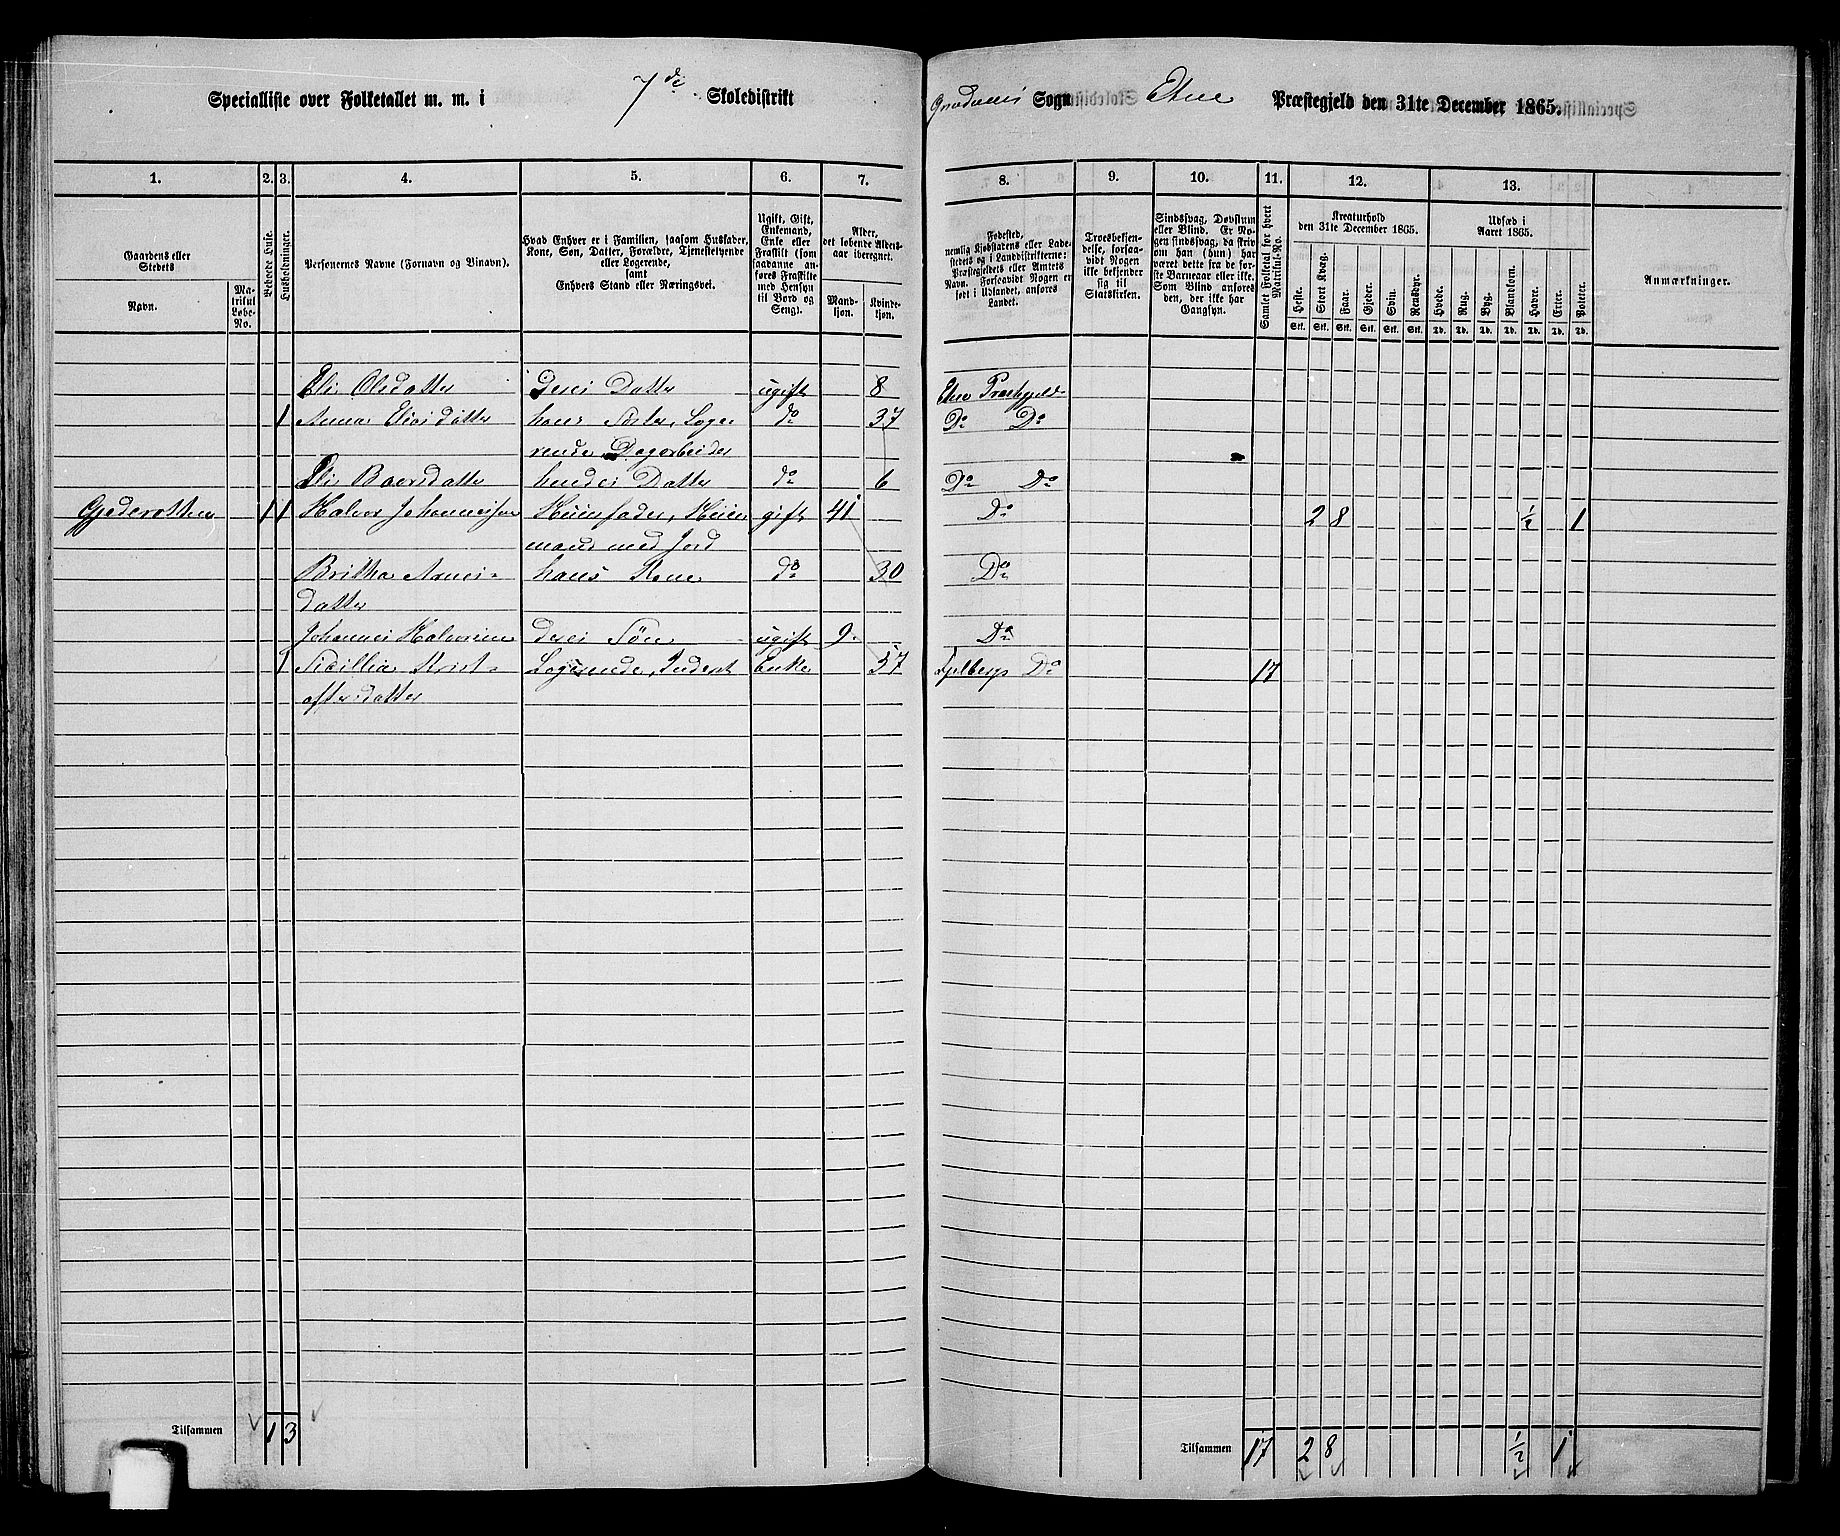 Specialliste over Folketallet m. m. i 7de Skoledistrikt
Sogn Etne Præstegjeld den 31te December 1865.
1. 2. 3. 4. 5. 6. 7.
8. 9. 10. 11. 12. 13.
Gaardens eller Stedets
Navn.
Matrikul Løbe-No.
Beboede Huse.
Husholdninger.
Personernes Navne (Fornavn og Vinavn).
Hvad Enhver er i Familien, saasom Husfader,
Kone, Søn, Datter, Forældre, Tjenestetyende
eller Logerende,
samt
Enhvers Stand eller Næringsvei.
Ugift, Gift,
Enkemand,
Enke eller
Fraskilt (som
saadanne an-
føres Fraskilte
med Hensyn
til Bord og
Seng).
Alder,
det løbende Alders-
aar iberegnet.
Mand-
kjøn.
Kvinde-
kjøn.
Fødested,
nemlig Kjøbstadens eller Lade-
stedets og i Landdistrikterne:
Præstegjeldets eller Amtets
Navn. Forsaavidt Nogen er
født i Udlandet, anføres
Landet.
Troesbekjen-
delse, forsaa-
vidt Nogen
ikke bekjender
sig til
Statskirken.
Sindssvag, Døvstum
eller Blind. Er No-
gen sindssvag, da skriv
om han (hun) har
været dette fra de før-
ste Barneaar eller ikke.
Som Blind anføres
den, der ikke har
Gangsyn.
Samlet Folketal for hvert
Matrikul-No.
Kreaturhold
den 31te December 1865.
Heste. Stort Kvæg. Faar. Gjeder. Svin. Rensdyr.
Stk. Stk. Stk. Stk. Stk. Stk.
Udsæd i
Aaret 1865.
Hvede. Rug. Byg. Blandkorn. Havre. Erter. Poteter.
Td. Td. Td. Td. Td. Td. Td.
Anmærkninger.
Eli Olsdatter deres Datter ugift 8 Etne Præstegjeld
1 Anna Eliasdatter hans Søster, Loge- do 37 Do Do
rende, Dagarbeider
Eli Baarsdatter hendes Datter do 6 Do Do
1 1 Halvor Johannessen Huusfader, Huus- gift 41 Do 2 8 ½ 1
mand med Jord
Britha Arnes- hans Kone do 30 Do
datter
Johannes Halvorsen deres Søn ugift 9 Do
1 Sicillia Krist- Logerende, Inderst Enke 57 Fjelberg Do 17
ofersdatter
Tilsammen 1 3
Tilsammen 17 2 8 ½ 1